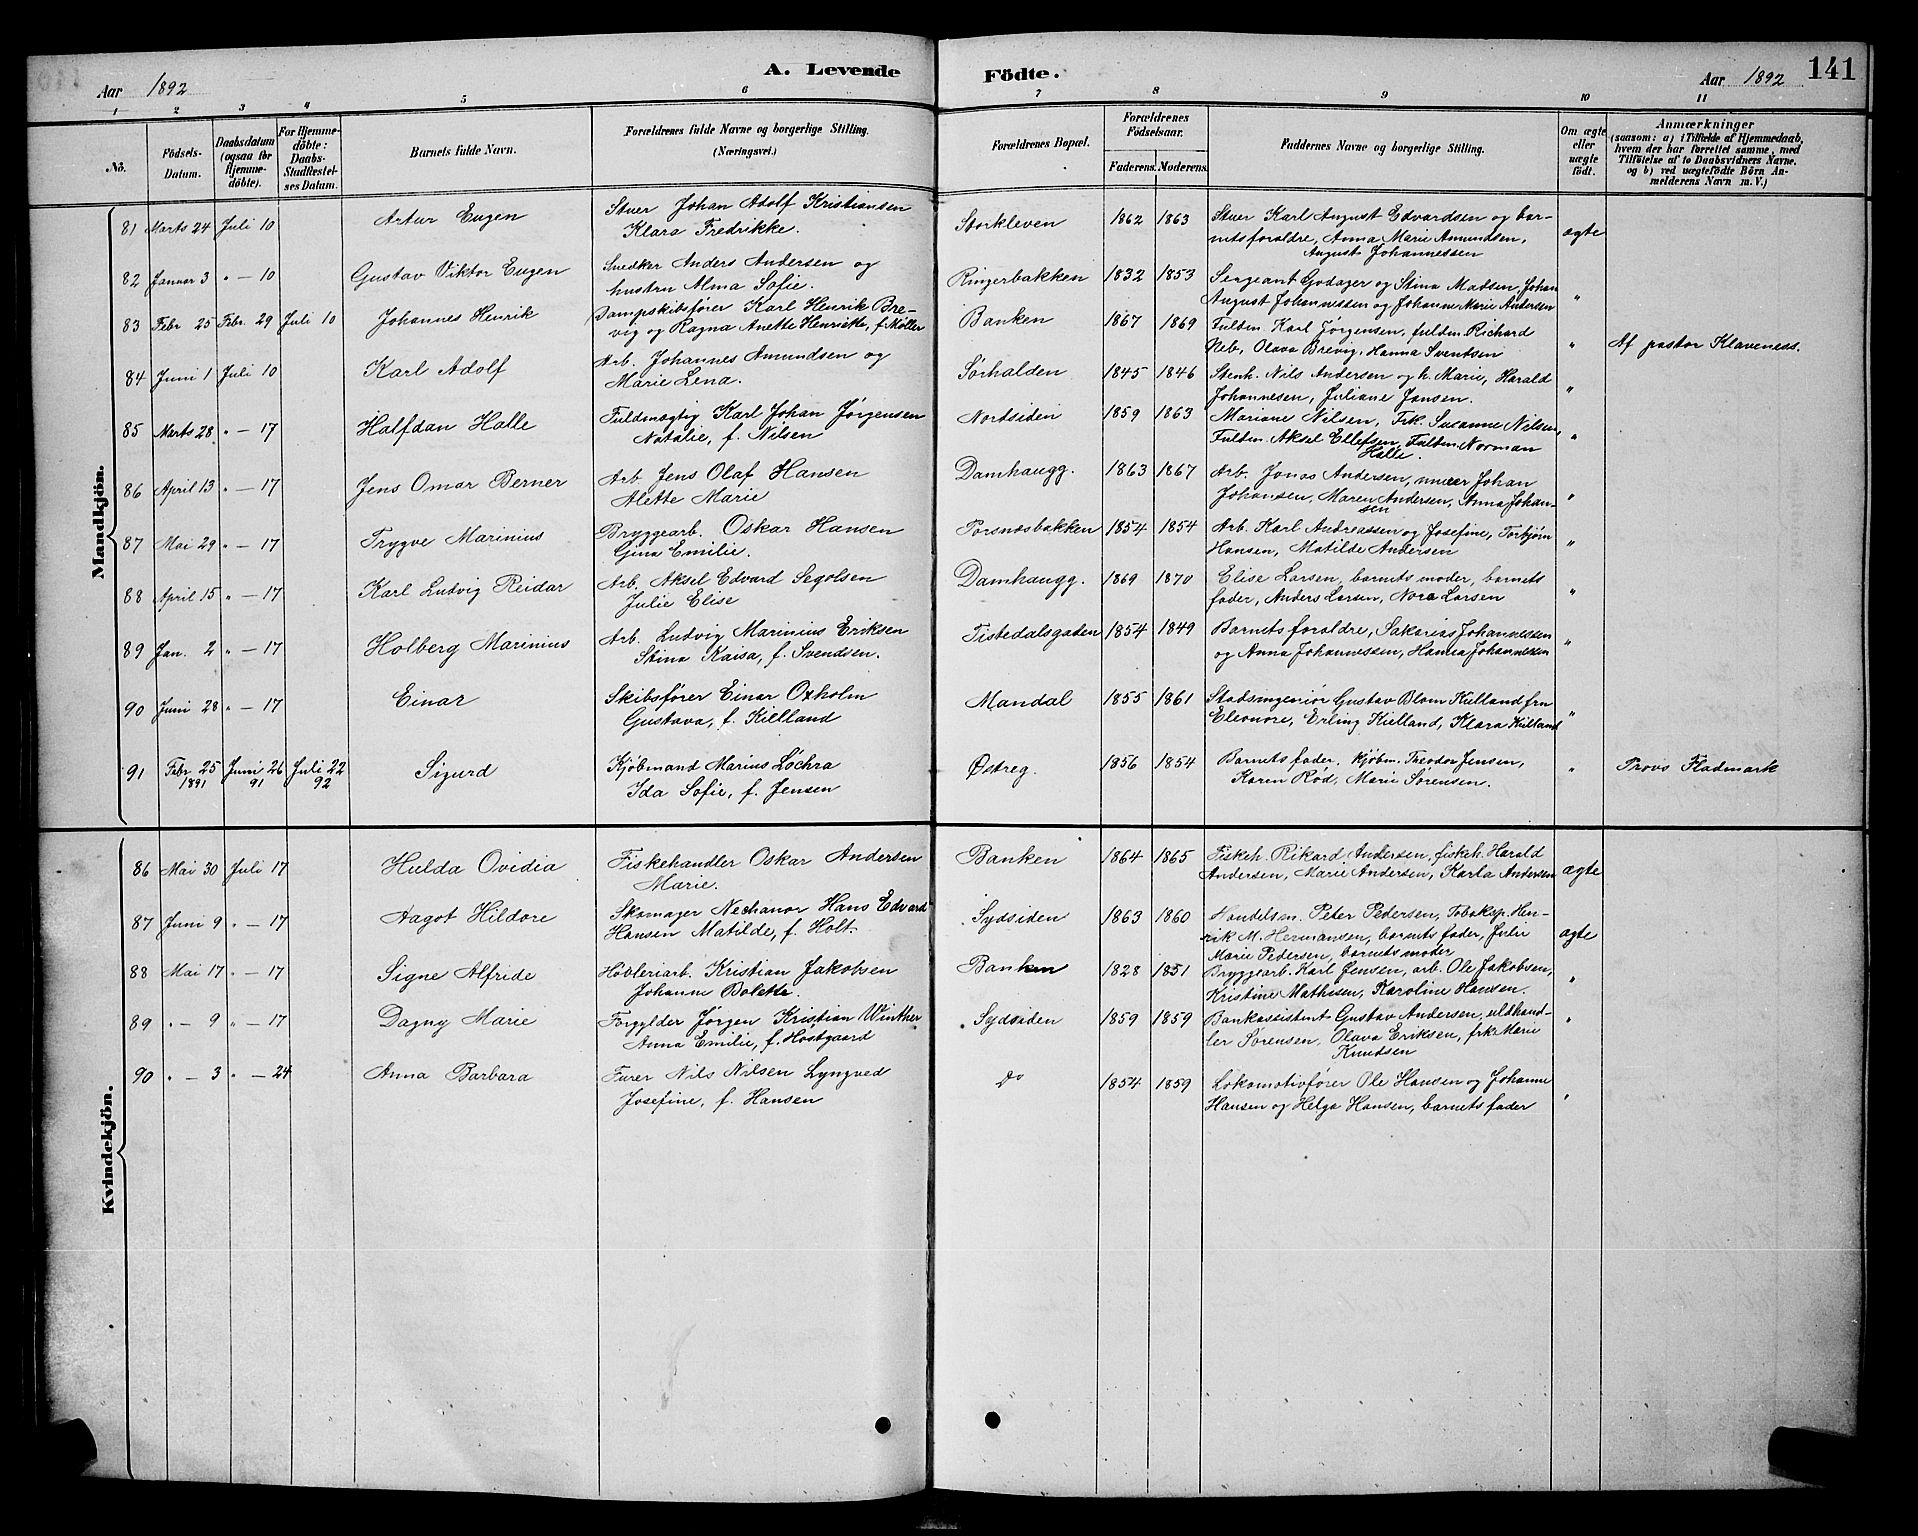 A. Levende Födte.
141
Aar 1892
Aar 1892
1 2 3 4 5 6 7 8 9 10 11
No.
Födsels-Datum.
Daabsdatum (ogsaa for Hjemmedöbte).
For Hjemmedöbte: Daabs-Stadfestelses Datum.
Barnets fulde Navn.
Forældrenes fulde Navne og borgerlige Stilling. (Næringsvei.)
Forældrenes Bopæl.
Forældrenes Födselsaar.
Faderens. Moderens.
Faddernes Navne og borgerlige Stilling.
Om ægte eller uægte født.
Anmærkninger
(saasom: a) i Tilfælde af Hjemmedaab, hvem der har forrettet samme, med Tilföielse af to Daabsvidners Navne, og b) ved uægtefödte Börn Anmelderens Navn m. V.)
Mandkjön.
81 Marts 24 Juli 10 Artur Eugen Stuer Johan Adolf Kristiansen
Klara Fredrikke. Storkleven 1862 1863 Stuer Karl August Edvardsen og bar-
netsforældre, Anna Marie Amundsen,
August Johannessen ægte
82 Januar 3 " — 10 Gustav Viktor Eugen Snedker Anders Andersen og
hustru Alma Sofie. Ringerbakken 1832 1853 Sergeant Godager og Stina Madsen, Johan
August Johannessen og Johanne Marie Andersen "
83 Febr. 25 Febr. 29 Juli 10 Johannes Henrik Dampskibsfører Karl Henrik Bre-
vig og Ragna Anette Henriette, f. Møller Banken 1867 1869 Fuldm. Karl Jørgensen, fuldm. Richard
Reb, Olava Brevig, Hanna Sventsen " Af pastor Klaveness.
84 Juni 1 Juli 10 Karl Adolf Arb. Johannes Amundsen og
Marie Lena. Sørhalden 1845 1846 Stenh. Nils Andersen og h. Marie, Harald
Johannesen, Juliane Jansen. "
85 Marts 28 " — 17 Halfdan Halle Fuldmægtig Karl Johan Jørgensen
Natalie, f. Nilsen Nordsiden 1859 1863 Mariane Nilsen, Frk. Susanne Nilsen,
Fuldm. Aksel Ellefsen, Fuldm. Norman
Halle. "
86 April 13 " — 17 Jens Omar Berner Arb. Jens Olaf Hansen
Alette Marie Damhaugg. 1863 1867 Arb. Jonas Andersen, murer Johan
Johansen, Maren Andersen, Anna Johan-
sen "
87 Mai 29 " — 17 Trygve Marinius Bryggearb. Oskar Hansen
Gina Emilie. Porsnæsbakken 1854 1854 Arb. Karl Andreassen og Josefine, Torbjørn
Hansen, Matilde Andersen "
88 April 15 " — 17 Karl Ludvig Reidar Arb. Aksel Edvard Segolsen
Julie Elise Damhaugg. 1869 1870 Elise Larsen, barnets moder, barnets
fader, Anders Larsen, Nora Larsen "
89 Jan. 2 " — 17 Holberg Marinius Arb. Ludvig Marinius Eriksen
Stina Kaisa, f. Svendsen. Tistedalsgaden 1854 1849 Barnets forældre, Sakarias Johannessen
og Anna Johannessen, Hanna Johannessen "
90 Juni 28 " — 17 Einar Skibsfører Einar Oxholm
Gustava, f. Kielland Mandal 1855 1861 Stadsingeniør Gustav Blom Kielland fru
Eleonore, Erling Kielland, Klara Kielland "
91 Febr. 25 1891 Juni 26 91 Juli 22 92 Sigurd Kjøbmand Marius Løchra
Ida Sofie, f. Jensen Østreg. 1856 1854 Barnets fader, kjøbm. Theodor Jensen,
Karen Rød, Marie Sørensen. " Provs Fladmark
Kvindekjön.
86 Mai 30 Juli 17 Hulda Ovidia Fiskehandler Oskar Andersen
Marie. Banken 1864 1865 Fiskeh. Rikard Andersen, fiskeh. Harald
Andersen, Marie Andersen, Karla Andersen ægte
87 Juni 9 " — 17 Aagot Hildore Skomager Nechanor Hans Edvard
Hansen Matilde, f. Holt. Sydsiden 1863 1860 Handelsm. Peter Pedersen, Tobaksp. Hen-
rik M. Hermansen, barnets fader, Julie
Marie Pedersen, barnets moder ægte
88 Mai 17 " — 17 Signe Alfride Høvleriarb. Kristian Jakobsen
Johanne Bolette. Banken 1828 1851 Bryggearb. Karl Jensen, arb. Ole Jakobsen,
Kristine Mathisen, Karoline Hansen. "
89 " — 9 " — 17 Dagny Marie Forgylder Jørgen Kristian Winther
Anna Emilie, f. Høstgaard Sydsiden 1859 1859 Bankassistent Gustav Andersen, uldhand-
ler Sørensen, Olava Eriksen, frk. Marie
Knudsen "
90 " — 3 " — 24 Anna Barbara Furer Nils Nilsen Lyngved
Josefine, f. Hansen Do 1854 1859 Lokomotivfører Ole Hansen og Johanne
Hansen og Helga Hansen, barnets fader "